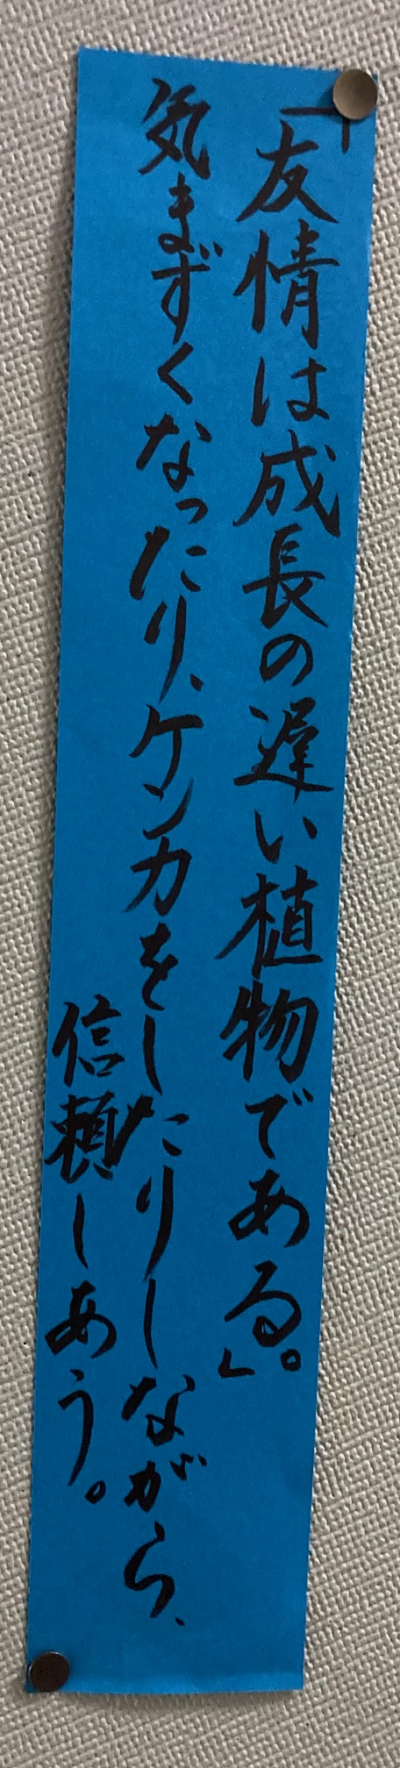 「友情は成長の遅い植物である。」
気まずくなったり、ケンカをしたりしながら、
信頼しあう。